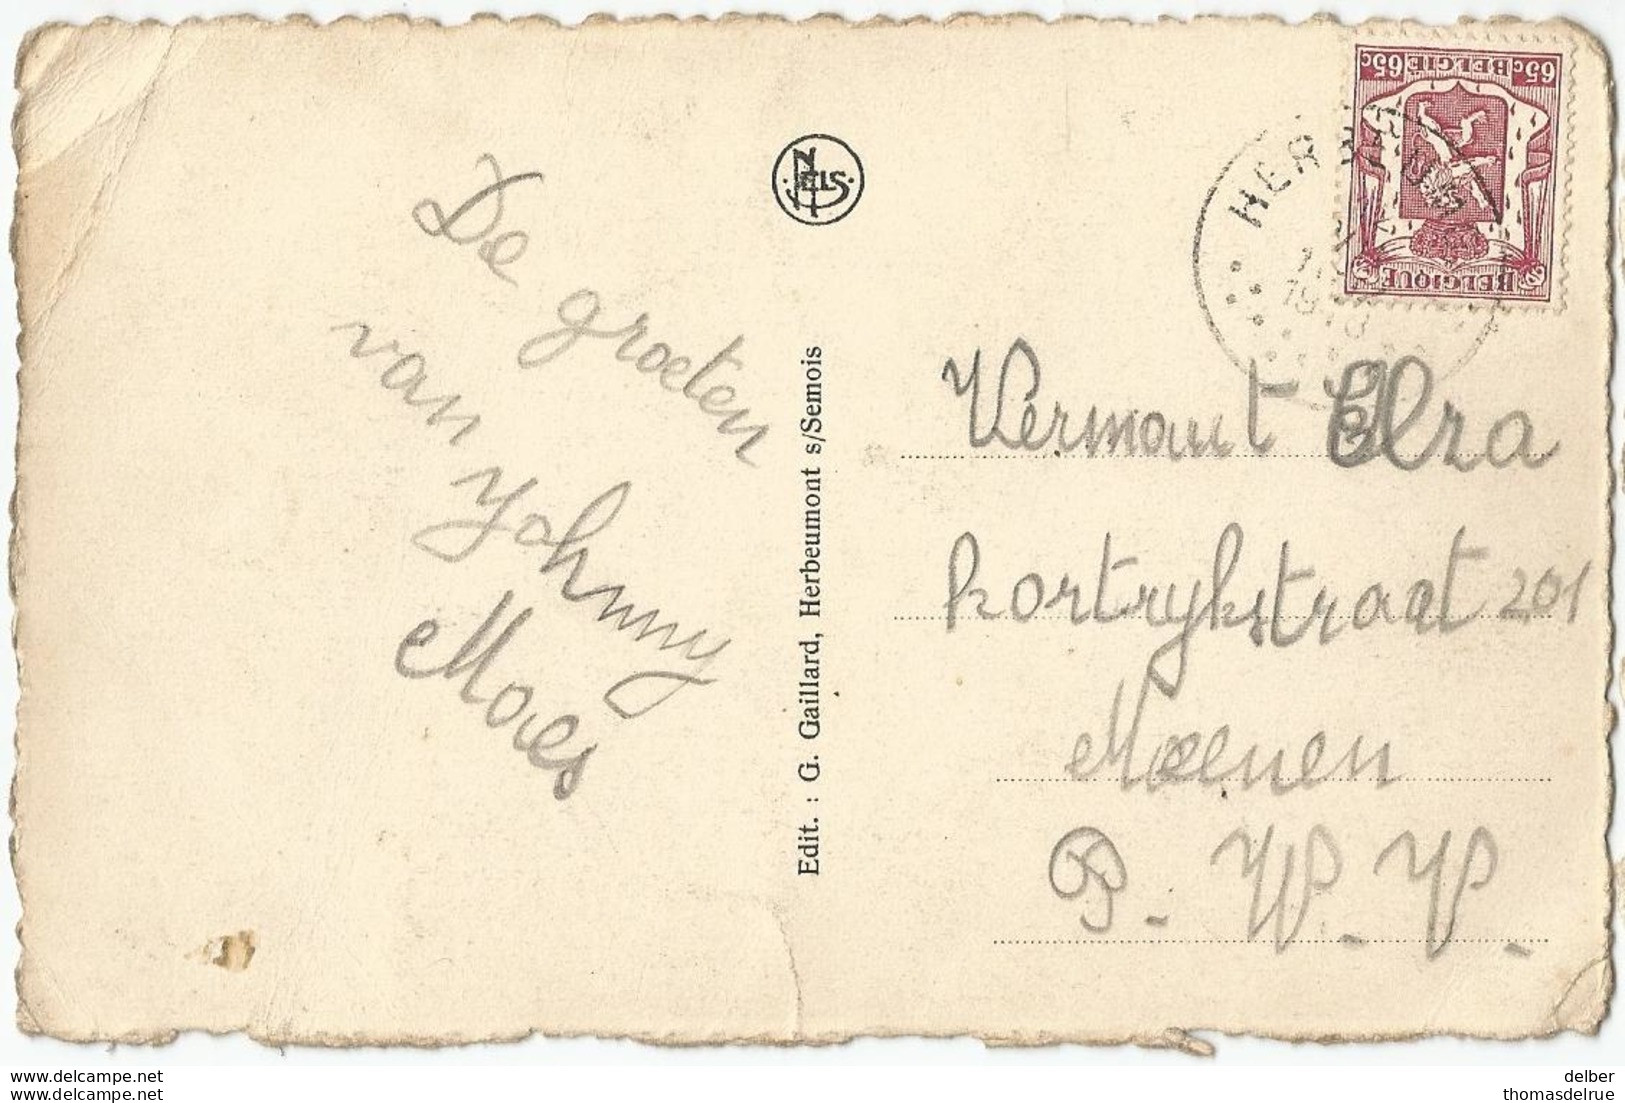 De groeten
van Yohnny
Maes
NELS
Edit. : G. Gaillard, Herbeumont s/Semois
65c BELGIE 65c
BELGIQUE
Vermaut Elza
Kortrykstraat 201
Meenen
P. W. V.
www.delcampe.net
www.delcampe.net
delber
thomasdelrue